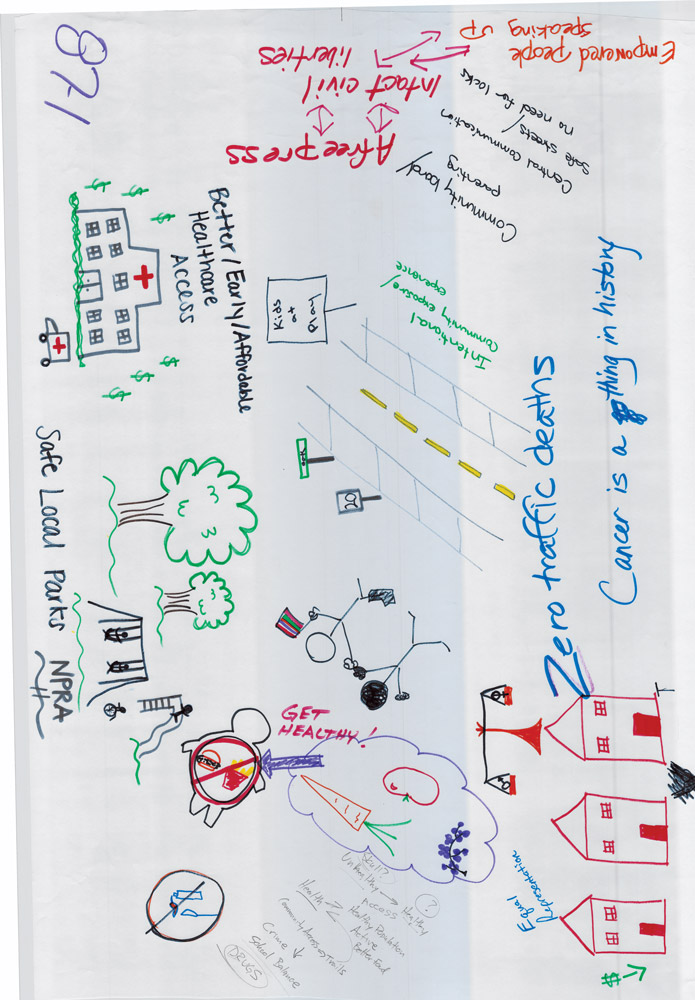 871
Empowered people
speaking up
Intact civil
liberties
A free press
No need for locks
Safe streets/
Central communication
Community board/
parenting
Intentional
community exposure/
experience
Better/Early/Affordable
Healthcare
Access
Kids
at
Play
20
Zero traffic deaths
Cancer is a thing in history
Safe Local Parks NPRA
GET
HEALTHY!
Equal
Representation
Unhealthy → Healthy
?
Access
Healthy Population
Active
Better Food
Health
Community Access
Trails
Crime
School Balance
DRUGS
$ $ $ $ $ $
$